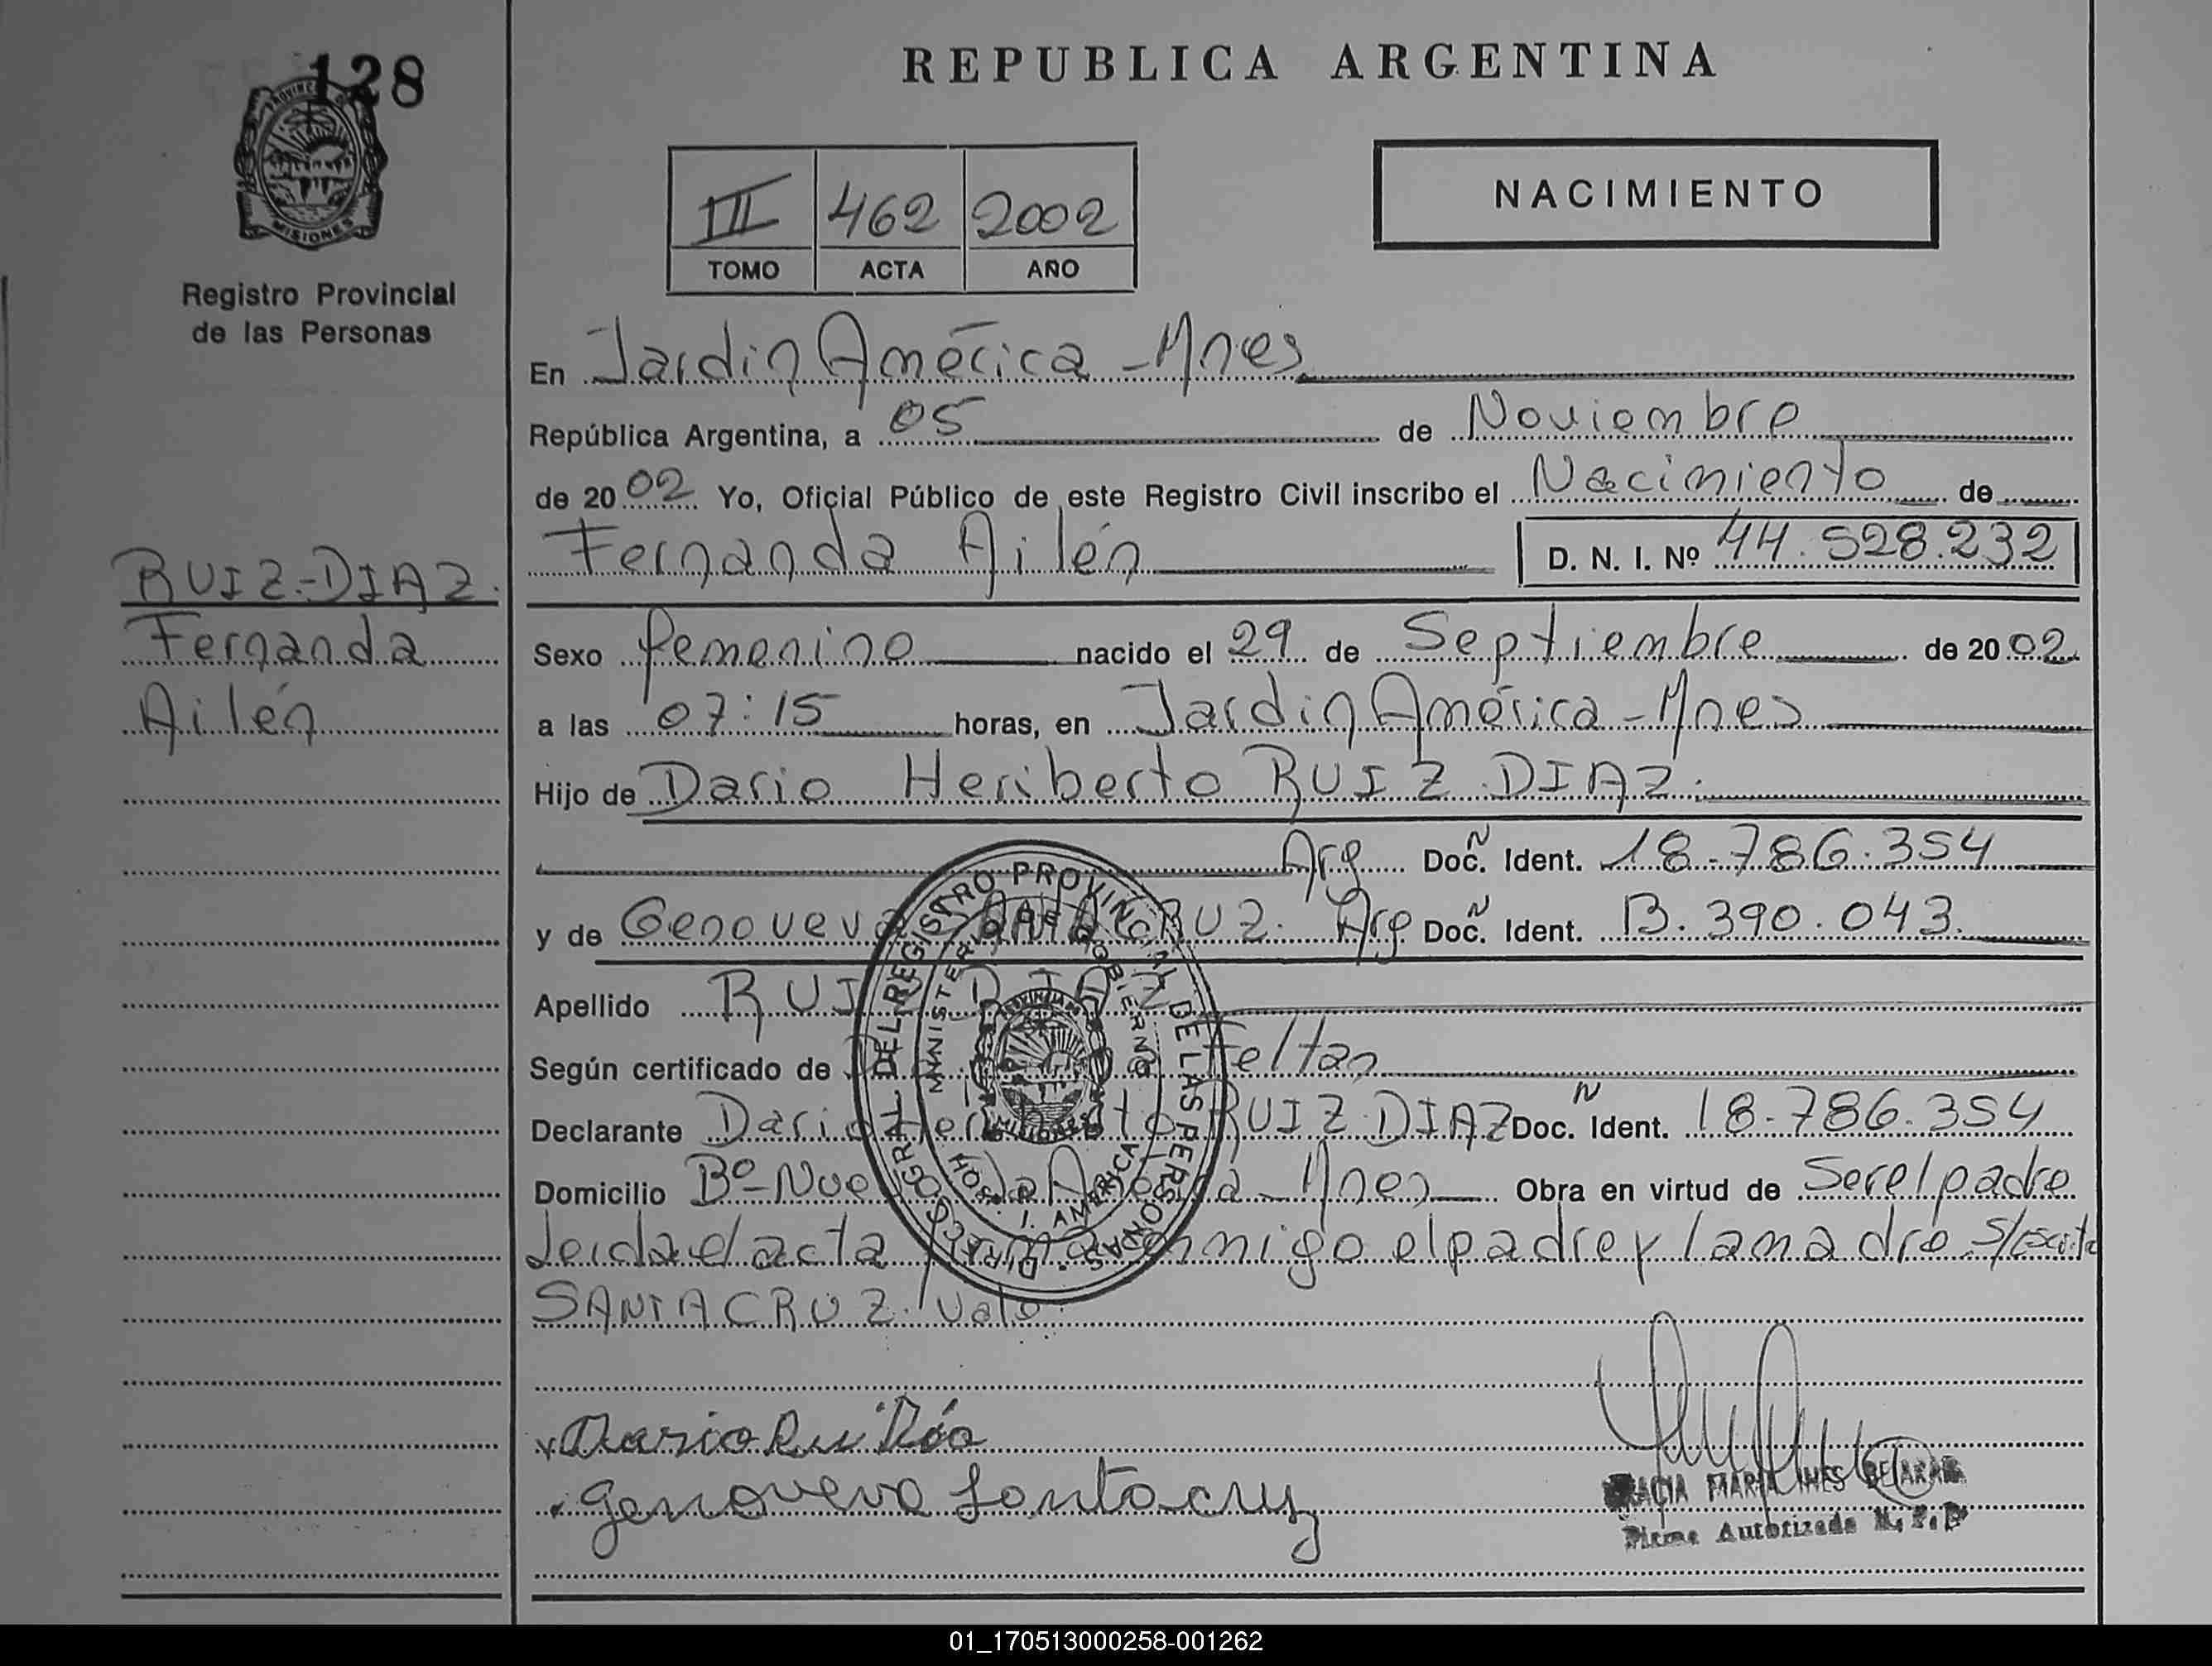 128
PROVINCIA DE
MISIONES
Registro Provincial
de las Personas
RUIZ-DIAZ.
Fernanda
Ailén
REPUBLICA ARGENTINA
NACIMIENTO
III 462 2002
TOMO ACTA AÑO
En Jardin América - Mnes
República Argentina, a 05 de Noviembre
de 2002 Yo, Oficial Público de este Registro Civil inscribo el Nacimiento de
Fernanda Ailén D. N. I. Nº 44.528.232
Sexo femenino nacido el 29 de Septiembre de 2002
a las 07:15 horas, en Jardin América - Mnes
Hijo de Dario Heriberto RUIZ DIAZ.
Arg Doc. N Ident. 18.786.354
y de Genoveva CRUZ. Arg Doc. N Ident. 13.390.043.
Apellido RUIZ DIAZ
Según certificado de Feltan
Declarante Dario Heriberto RUIZ DIAZ Doc. N Ident. 18.786.354
Domicilio Bº Mnes Obra en virtud de Ser el padre
Leida el acta conmigo el padre y la madre S/
SANTA CRUZ. Vale.
DIREC. GRAL. DEL REGISTRO PROVINCIAL DE LAS PERSONAS
MINISTERIO DE GOBIERNO
HOSP. J. AMERICA
PROVINCIA DE
MISIONES
Dario Rui Dia
genoveva Santa cruz
MARIA INES
Firma Autorizada R. P. P
01_170513000258-001262